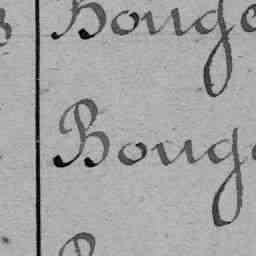 Bouge
Bouge